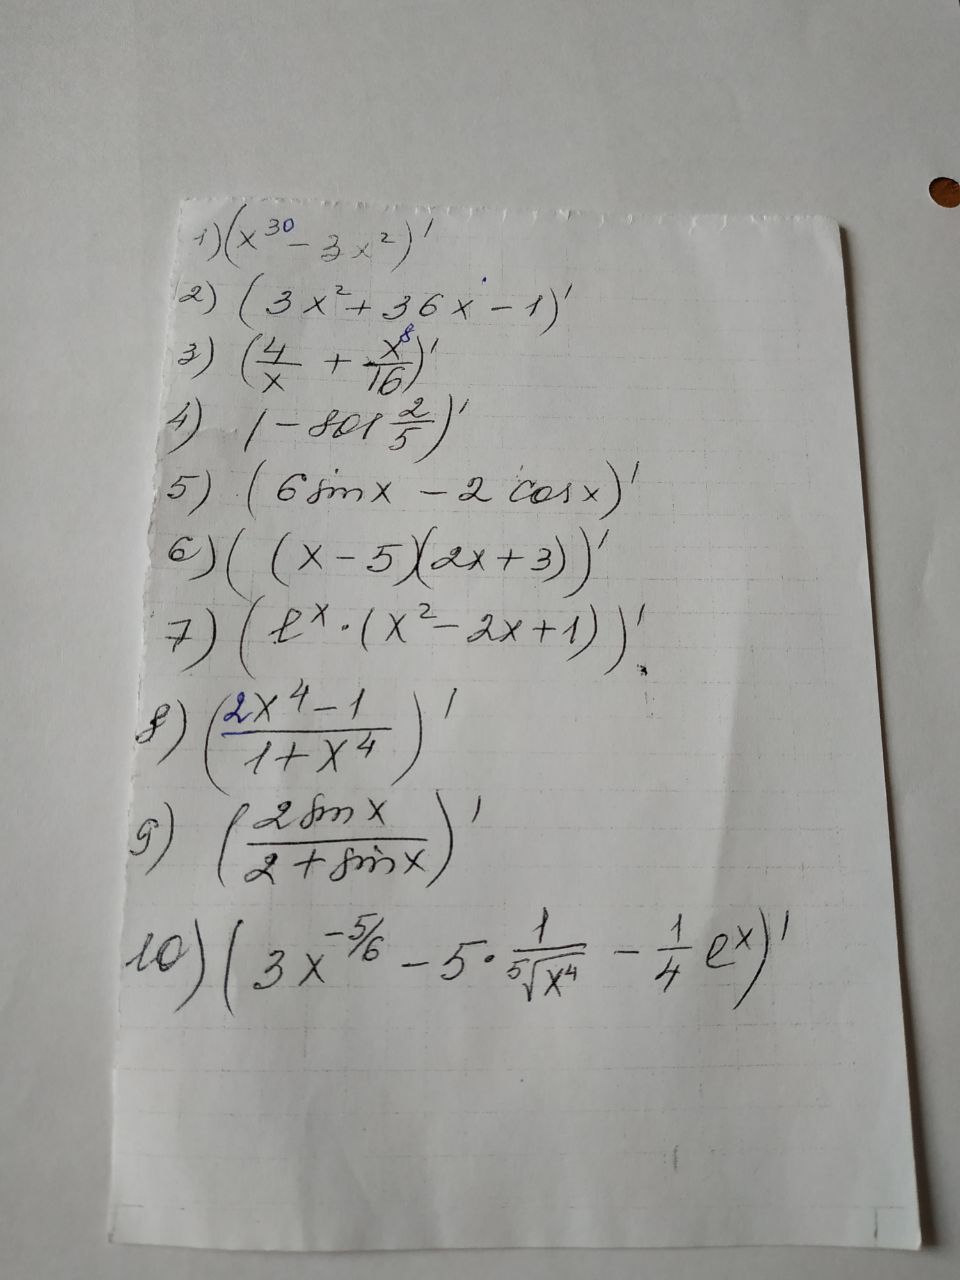 1) (x³⁰ − 3x²)'
2) (3x² + 36x − 1)'
3) (4/x + x⁸/16)'
4) (−801 2/5)'
5) (6 sin x − 2 cos x)'
6) ((x − 5)(2x + 3))'
7) (eˣ · (x² − 2x + 1))'
8) ((2x⁴ − 1)/(1 + x⁴))'
9) ((2 sin x)/(2 + sin x))'
10) (3x^(−5/6) − 5 · 1/⁵√(x⁴) − 1/4 eˣ)'